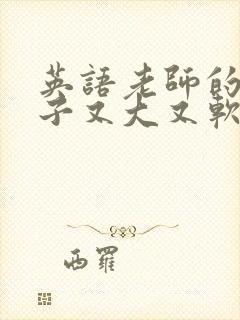 英語老師的
子又大又軟
西羅